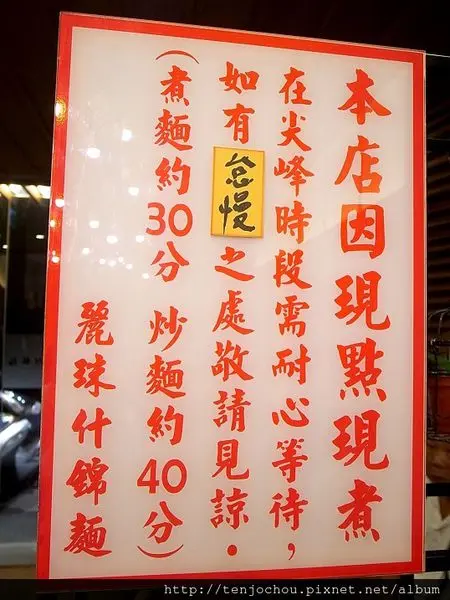 本店因現點現煮
在尖峰時段需耐心等待，
如有怠慢之處敬請見諒．
（煮麵約30分 炒麵約40分）
麗珠什錦麵
http://tenjochou.pixnet.net/album